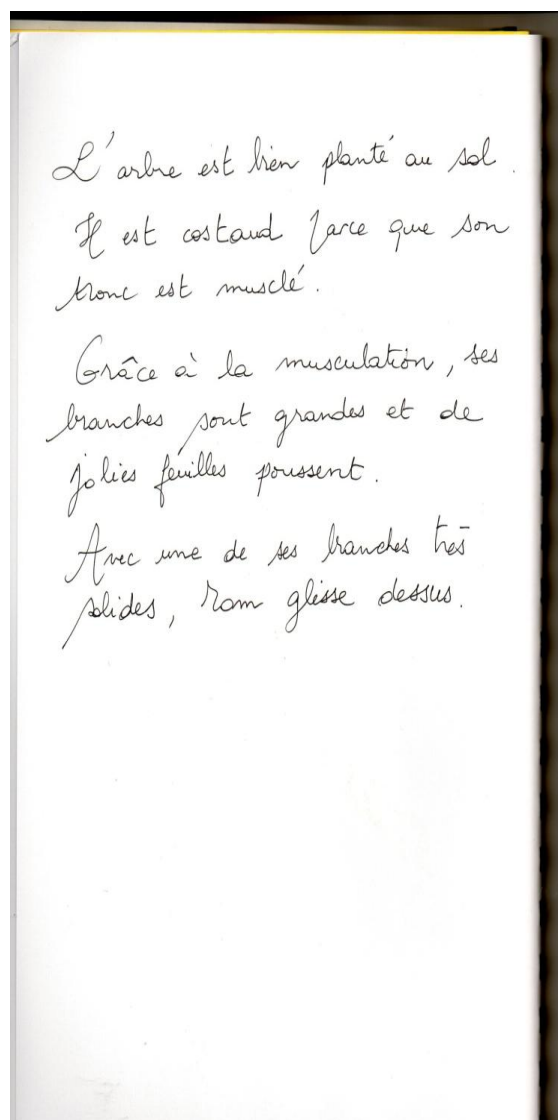 L'arbre est bien planté au sol.
Il est costaud parce que son
tronc est musclé.
Grâce à la musculation, ses
branches sont grandes et de
jolies feuilles poussent.
Avec une de ses branches très
solides, Tom glisse dessus.